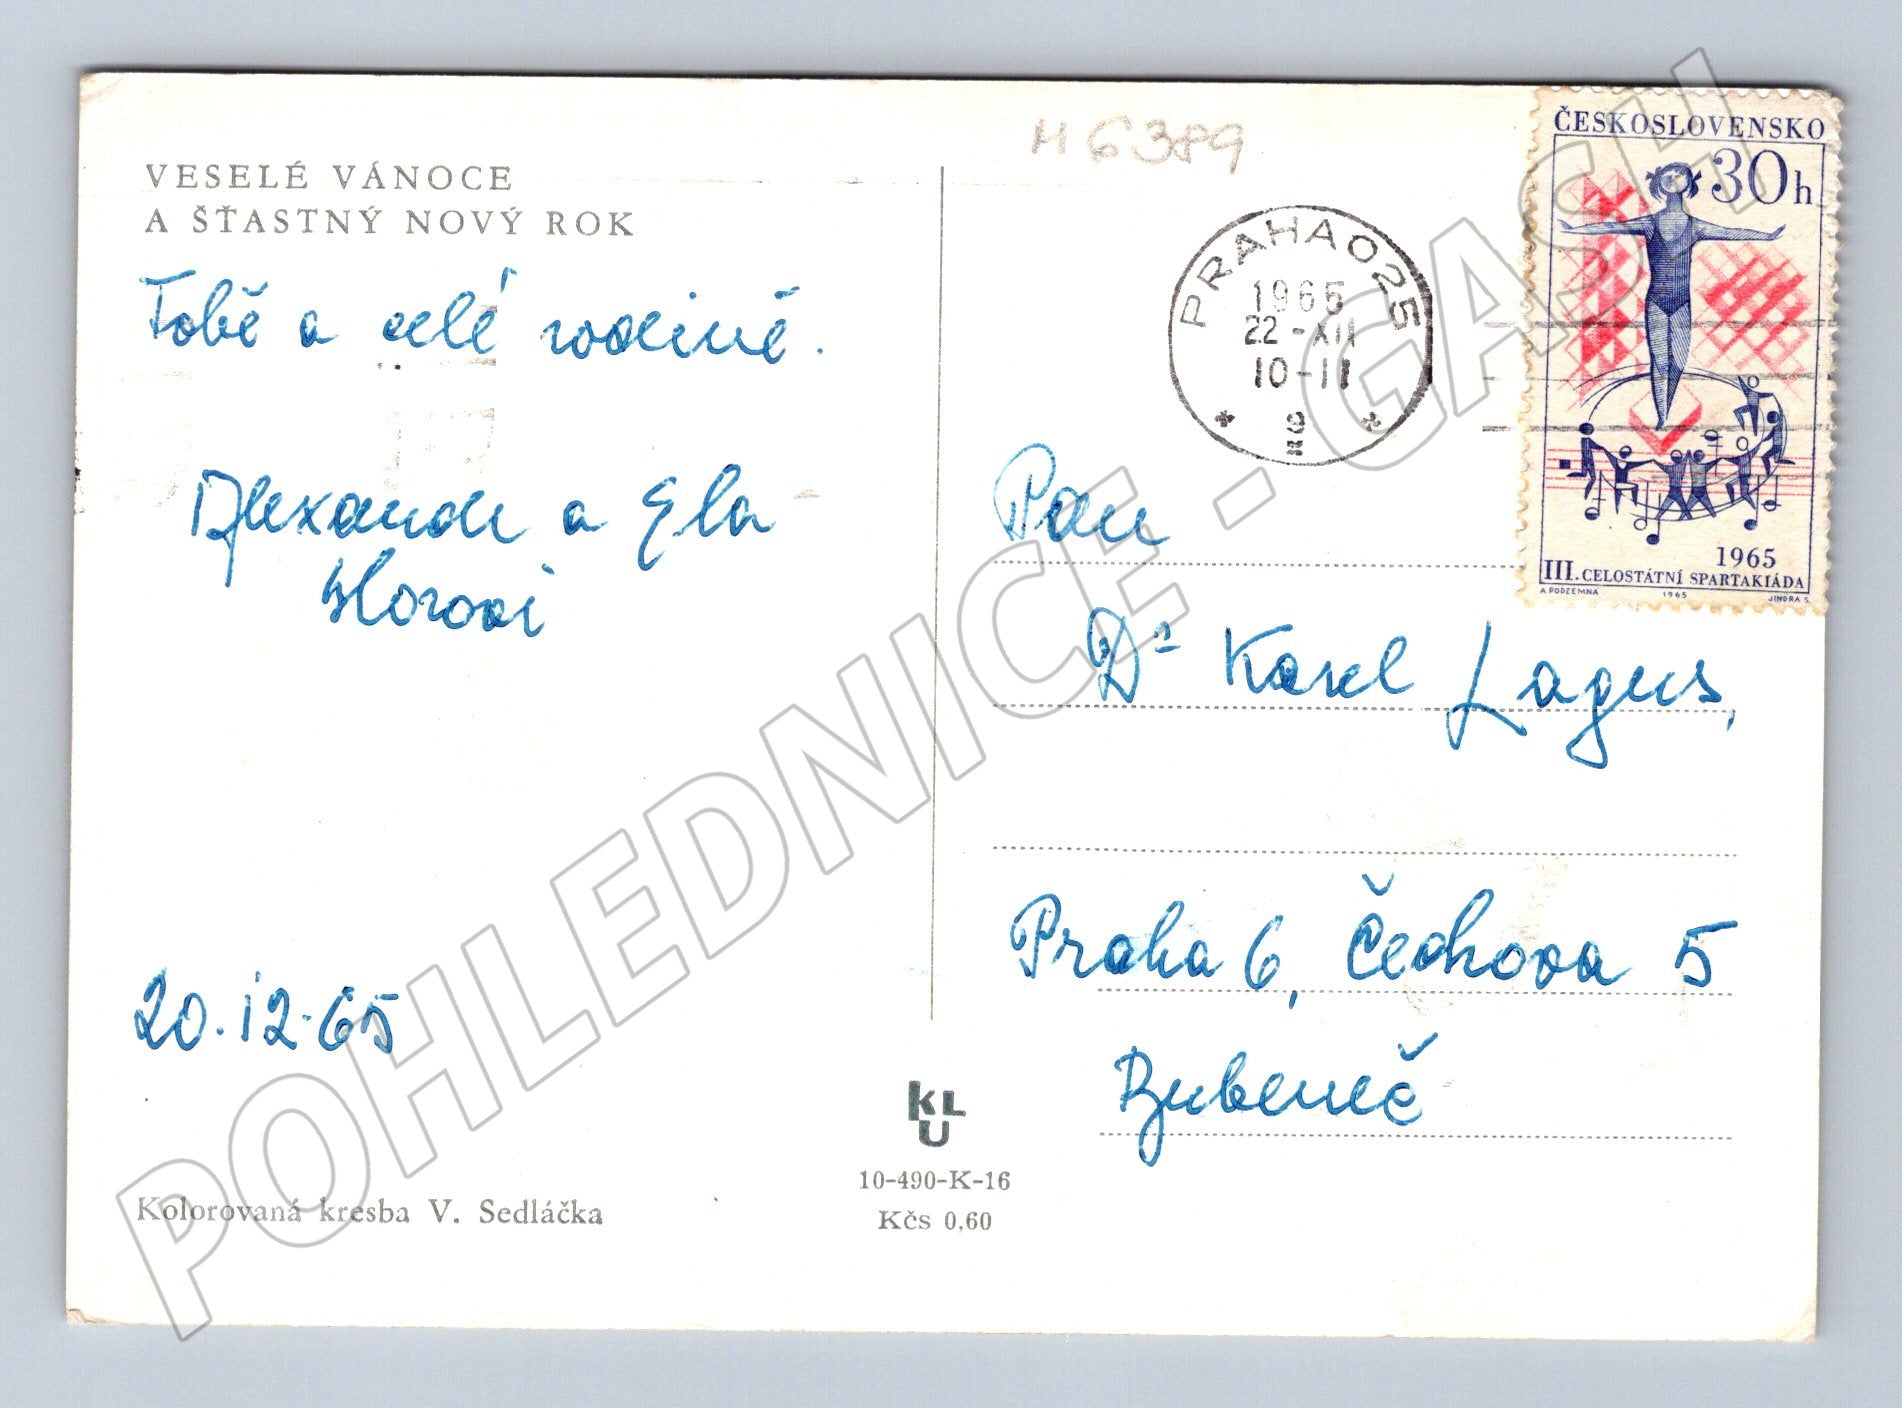 VESELÉ VÁNOCE
A ŠŤASTNÝ NOVÝ ROK
Tobě a celé rodině.
Alexandr a Ela
20.12.65
Kolorovaná kresba V. Sedláčka
KLU
10-490-K-16
Kčs 0,60
M 6389
PRAHA 025
1965
22-XII
10-11
ČESKOSLOVENSKO
30h
1965
III. CELOSTÁTNÍ SPARTAKIÁDA
A PODZEMNA 1965 JINDRA S.
Pan
Dr Karel Lagus,
Praha 6, Čechova 5
Bubeneč
POHLEDNICE - GASH